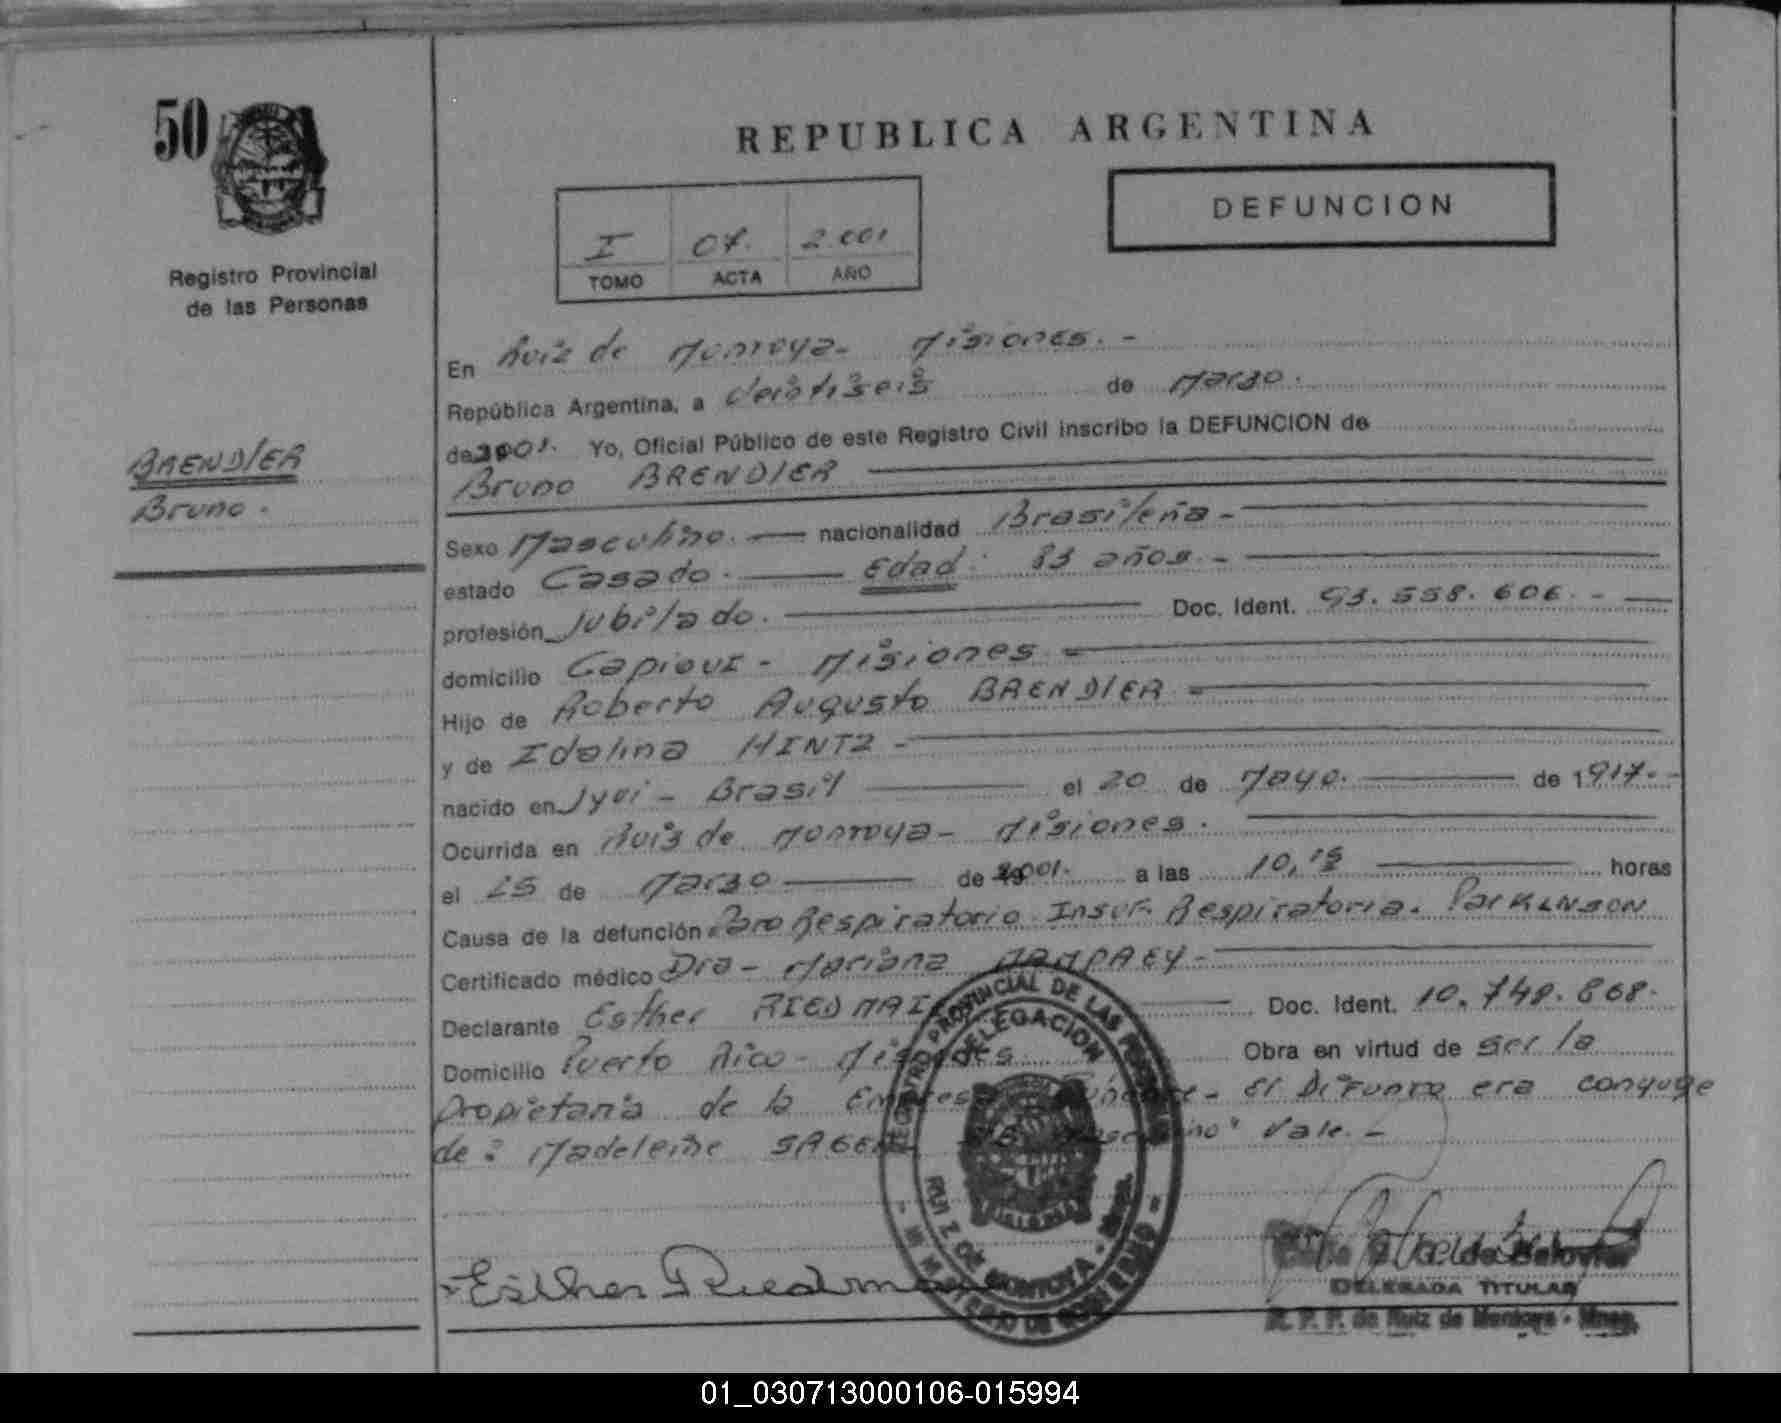 50
Registro Provincial
de las Personas
BRENDLER
Bruno.
REPUBLICA ARGENTINA
DEFUNCION
I 07. 2.001
TOMO ACTA AÑO
En Ruiz de Montoya- Misiones.-
República Argentina, a Veintiseis de Marzo.
de 2001. Yo, Oficial Público de este Registro Civil inscribo la DEFUNCION de
Bruno BRENDLER
Sexo Masculino. nacionalidad Brasileña-
estado Casado. Edad: 83 años.-
profesión Jubilado. Doc. Ident. 93.558.606.-
domicilio Capiovi- Misiones-
Hijo de Roberto Augusto BRENDLER-
y de Idalina HINTZ-
nacido en Jyui- Brasil el 20 de Mayo. de 1917.-
Ocurrida en Ruiz de Montoya- Misiones.
el 25 de Marzo de 2001. a las 10,15 horas
Causa de la defunción Paro Respiratorio Insuf. Respiratoria. Parkinson
Certificado médico Dra- Mariana MAMPAEY-
Declarante Esther Doc. Ident. 10.748.868.
Domicilio Puerto Rico- Misiones Obra en virtud de ser la
Propietaria de la Empresa Fúnebre- El Difunto era conyuge
de: Madeleine Vale.-
REGISTRO PROVINCIAL DE LAS PERSONAS
DELEGACION
RUIZ DE MONTOYA - Mnes.
- MINISTERIO DE GOBIERNO -
Esther
DELEGADA TITULAR
R. P. P. de Ruiz de Montoya - Mnes.
01_030713000106-015994